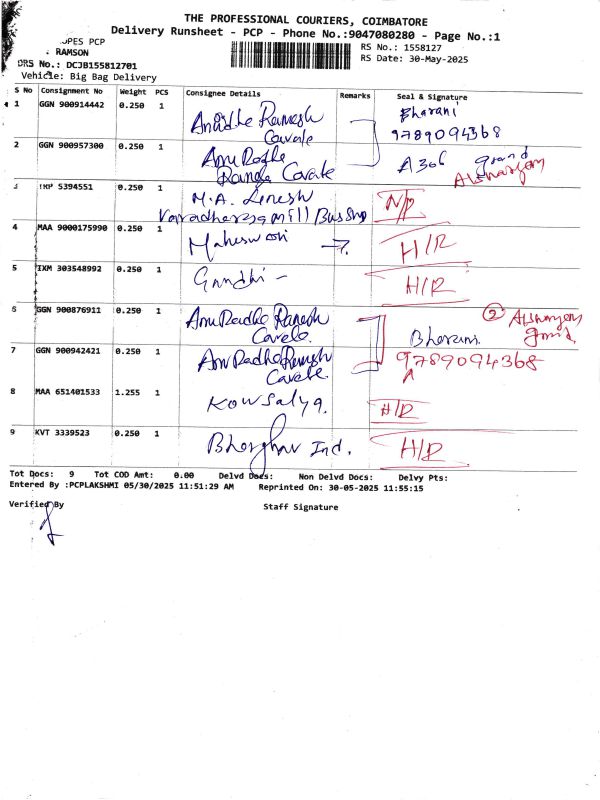 THE PROFESSIONAL COURIERS, COIMBATORE
Delivery Runsheet - PCP - Phone No.:9047080280 - Page No.:1
OPES PCP
: RAMSON
DRS No.: DCJB155812701
Vehicle: Big Bag Delivery
RS No.: 1558127
RS Date: 30-May-2025
S No Consignment No Weight PCS Consignee Details Remarks Seal & Signature
1 GGN 900914442 0.250 1 Ramesh Bharani
9789094368
2 GGN 900957300 0.250 1 A306 grand
5394551 0.250 1 M.A. N/R
4 MAA 9000175990 0.250 1 Maheswari H/R
5 IXM 303548992 0.250 1 Gandhi - H/R
6 GGN 900876911 0.250 1 Anu Radha Ramesh ②
7 GGN 900942421 0.250 1 Anu Radha Ramesh Bharani
9789094368
8 MAA 651401533 1.255 1 Kowsalya. H/R
9 KVT 3339523 0.250 1 Ind. H/R
Tot Docs: 9 Tot COD Amt: 0.00 Delvd Docs: Non Delvd Docs: Delvy Pts:
Entered By :PCPLAKSHMI 05/30/2025 11:51:29 AM Reprinted On: 30-05-2025 11:55:15
Verified By Staff Signature